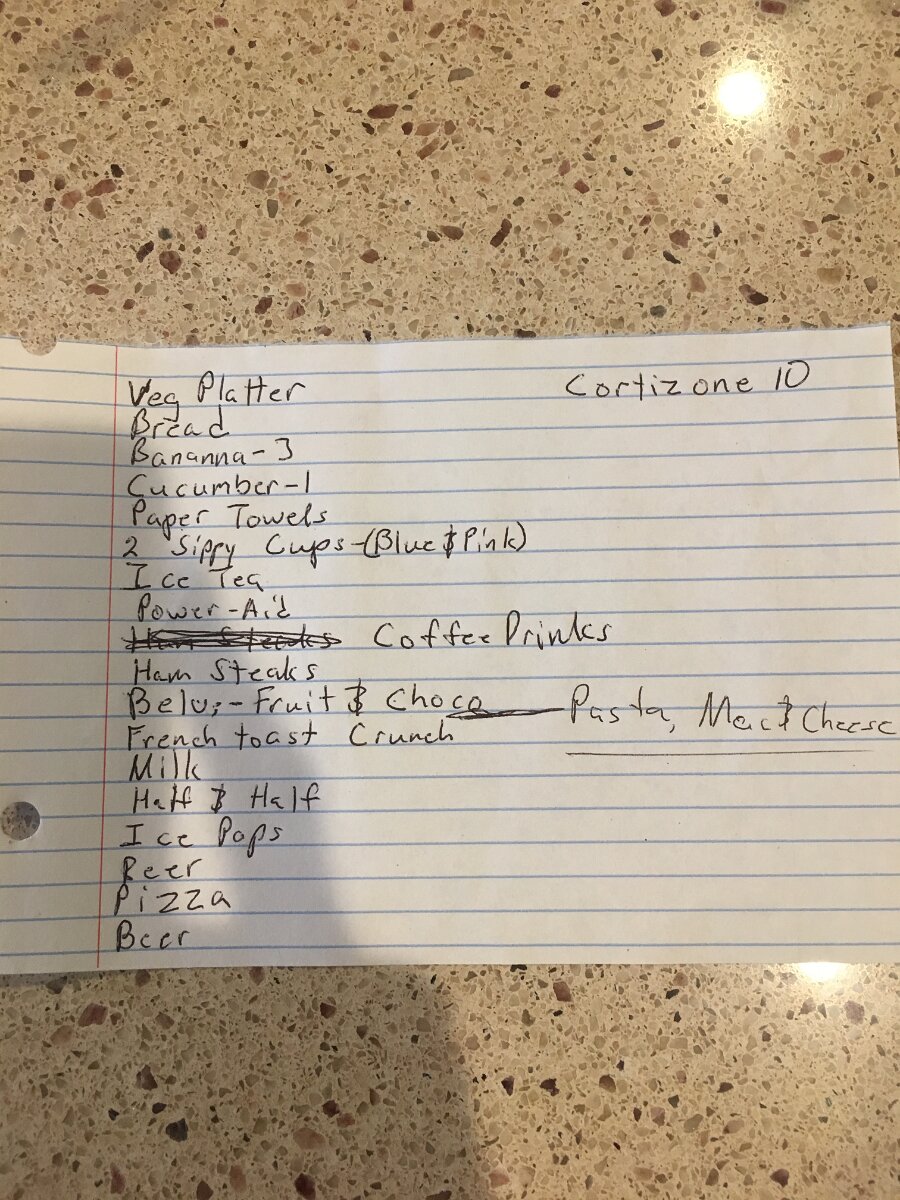 Veg Platter
Cortizone 10
Bread
Bananna-3
Cucumber-1
Paper Towels
2 Sippy Cups-(Blue & Pink)
Ice Tea
Power-Aid
Ham Steaks Coffee Drinks
Ham Steaks
Belvi-Fruit & Choco
Pasta, Mac & Cheese
French toast Crunch
Milk
Half & Half
Ice Pops
Beer
Pizza
Beer